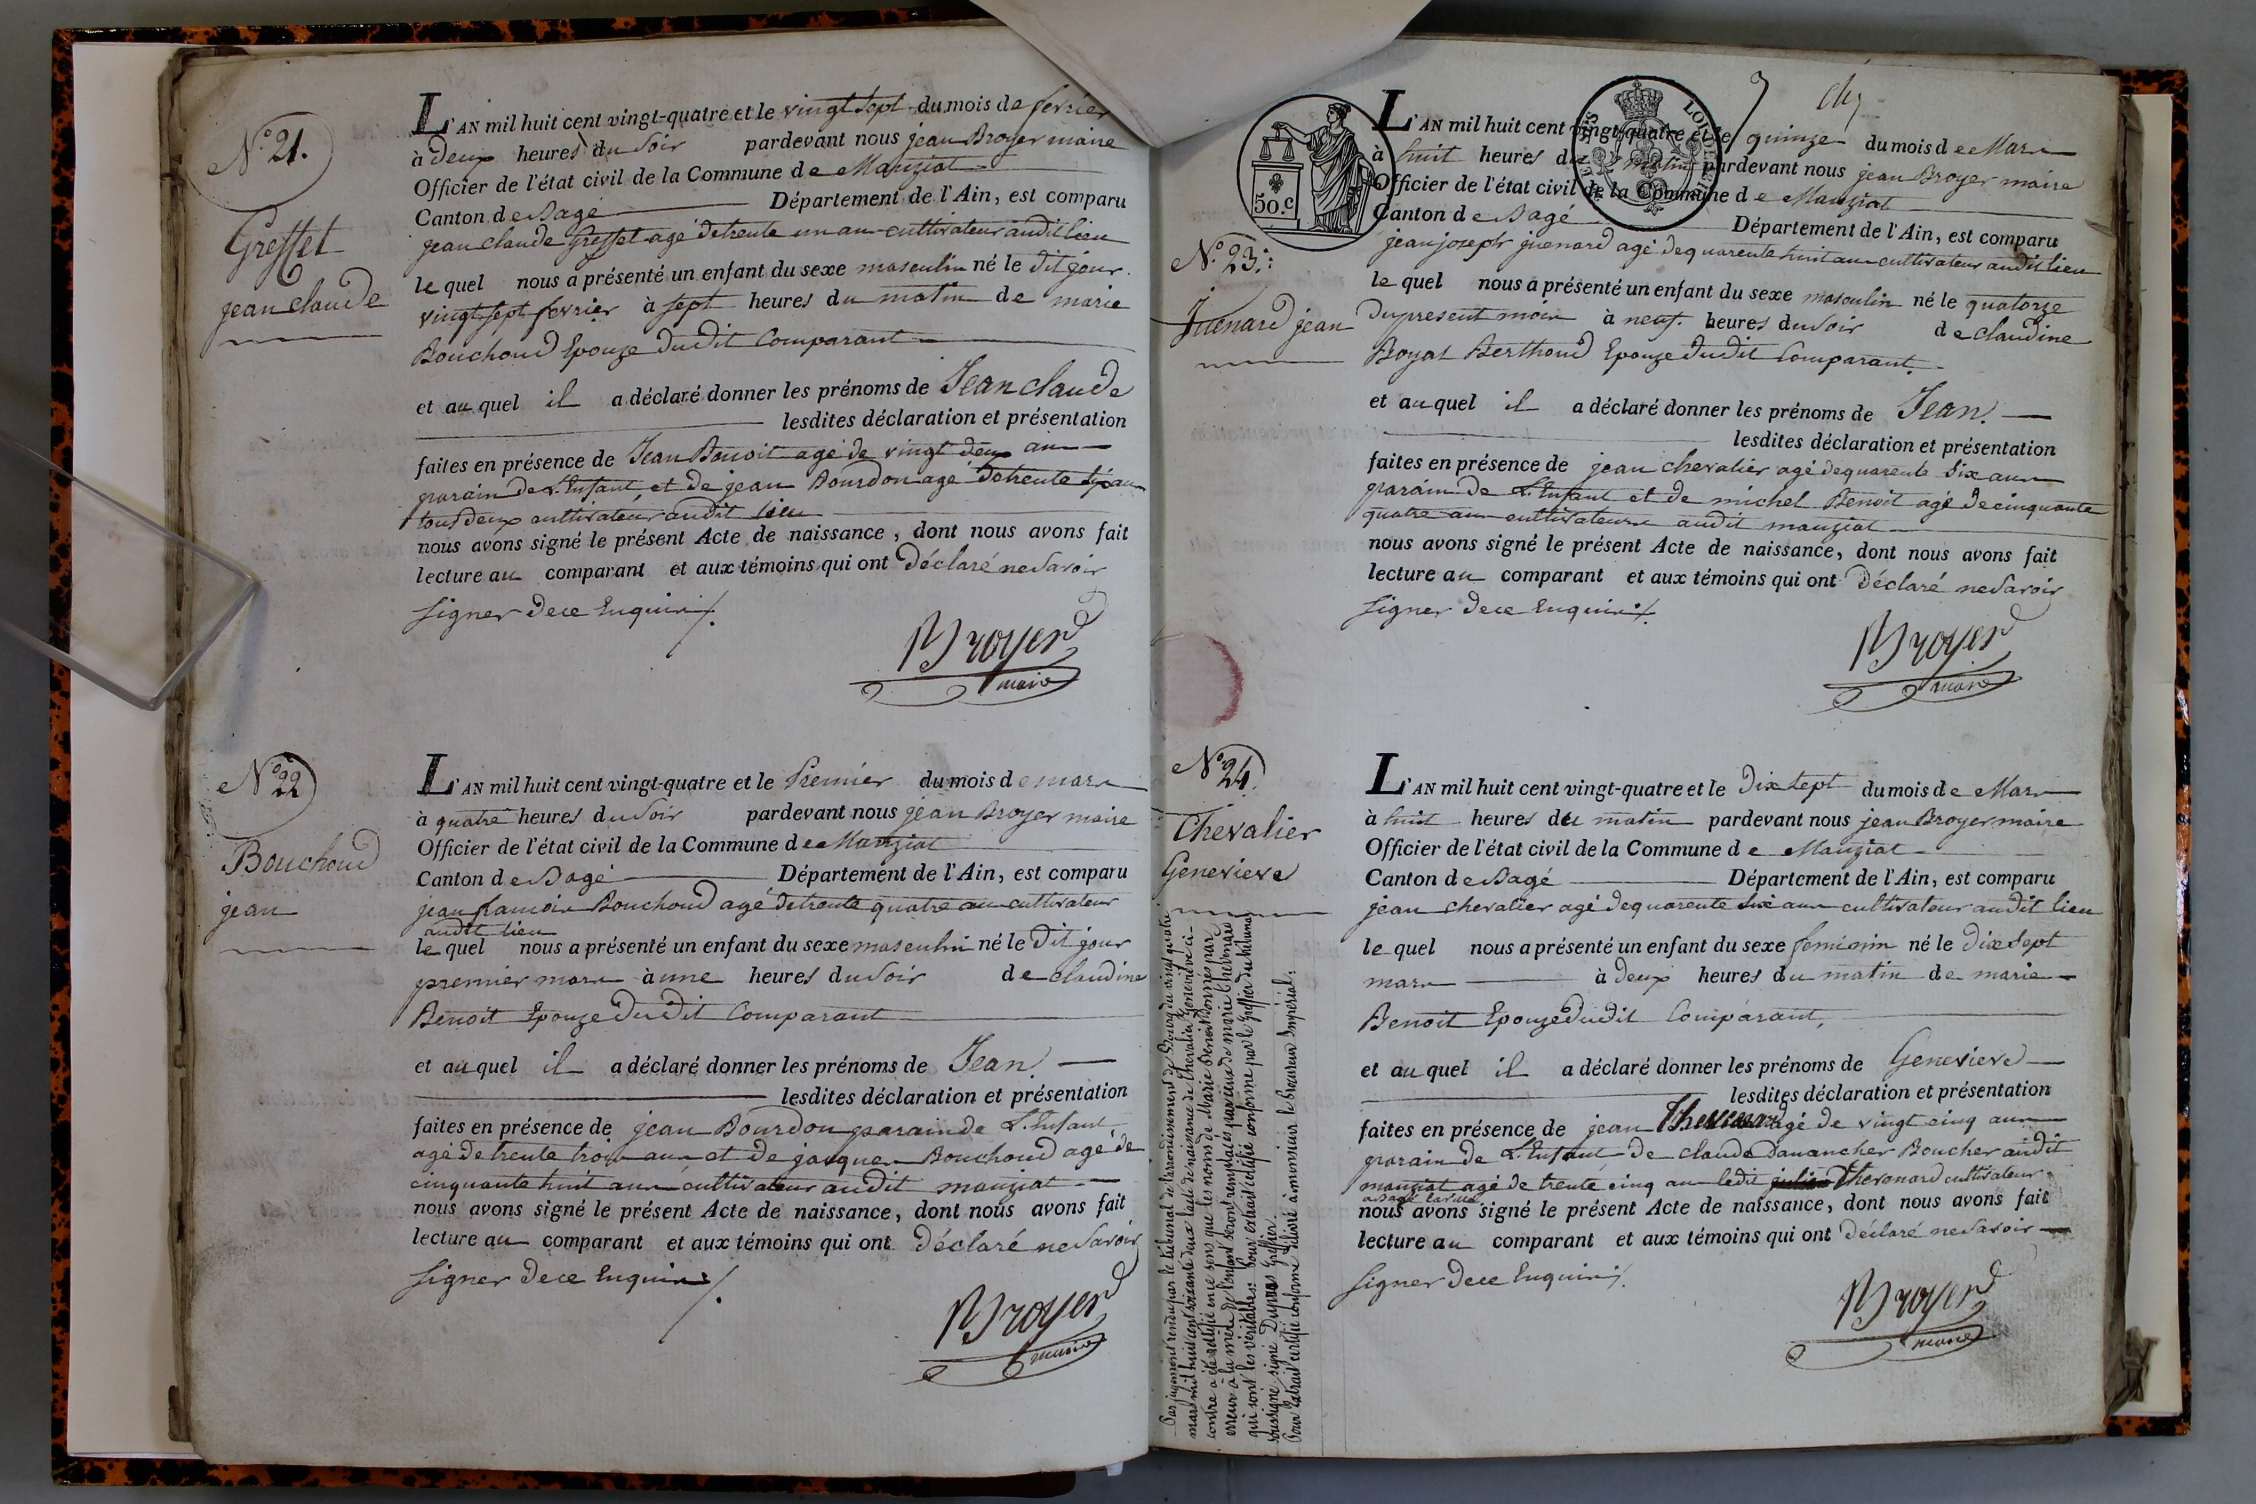 N.° 21.
Greffet
jean claude
L'AN mil huit cent vingt-quatre et le vingt sept du mois de fevrier
à deux heures du soir pardevant nous jean Broyer maire
Officier de l'état civil de la Commune de Manziat
Canton de Bagé Département de l'Ain, est comparu
jean claude Greffet agé de trente un an cultivateur audit lieu
lequel nous a présenté un enfant du sexe masculin né le dit jour
vingt sept fevrier à sept heures du matin de marie
Bouchoud Epouze dudit Comparant
et auquel il a déclaré donner les prénoms de Jean claude
lesdites déclaration et présentation
faites en présence de Jean Benoit agé de vingt deux ans
parain de L'Enfant, et de jean Bourdon agé de trente
tous deux cultivateurs audit lieu
nous avons signé le présent Acte de naissance, dont nous avons fait
lecture au comparant et aux témoins qui ont déclaré ne savoir
signer de ce Enquis ./.
Broyer
maire
N.° 22
Bouchoud
jean
L'AN mil huit cent vingt-quatre et le Premier du mois de mars
à quatre heures du soir pardevant nous jean Broyer maire
Officier de l'état civil de la Commune de Manziat
Canton de Bagé Département de l'Ain, est comparu
jean francois Bouchoud agé de trente quatre ans cultivateur
audit lieu
lequel nous a présenté un enfant du sexe masculin né le dit jour
premier mars à une heures du soir de claudine
Benoit Epouze dudit Comparant
et auquel il a déclaré donner les prénoms de Jean.
lesdites déclaration et présentation
faites en présence de jean Bourdon parain de L'Enfant
agé de trente trois ans et de jacques Bouchoud agé de
cinquante huit ans cultivateur audit manziat
nous avons signé le présent Acte de naissance, dont nous avons fait
lecture au comparant et aux témoins qui ont déclaré ne savoir
signer de ce Enquis ./.
Broyer
maire
50.c
N.° 23.
Juenard jean
L'AN mil huit cent vingt-quatre et le quinze du mois de Mars
à huit heures du matin pardevant nous jean Broyer maire
Officier de l'état civil de la Commune de Manziat
Canton de Bagé Département de l'Ain, est comparu
jean joseph juenard agé de quarente huit ans cultivateur audit lieu
lequel nous a présenté un enfant du sexe masculin né le quatorze
du present mois à neuf heures du soir de claudine
Boyat Berthoud Epouze dudit Comparant.
et auquel il a déclaré donner les prénoms de Jean.
lesdites déclaration et présentation
faites en présence de jean chevalier agé de quarente six ans
parain de L'Enfant et de michel Benoit agé de cinquante
quatre ans cultivateurs audit manziat
nous avons signé le présent Acte de naissance, dont nous avons fait
lecture au comparant et aux témoins qui ont déclaré ne savoir
signer de ce Enquis ./.
Broyer
maire
N.° 24.
Chevalier
Genevieve
Par jugement rendu par le tribunal de l'arrondissement de Bourg du vingt quatre
mars mil huit cent soixante deux l'acte de naissance de Chevalier Genevieve ci-
contre a été rectifié en ce sens que les noms de Marie Benoit donnés par
erreur à la mère de l'enfant seront remplacés par ceux de marie
qui sont les véritables. Pour extrait certifié conforme par le greffier du tribunal
soussigné signé Greffier.
Pour Extrait certifié conforme délivré à monsieur le Procureur Impérial.
L'AN mil huit cent vingt-quatre et le Dix sept du mois de Mars
à huit heures du matin pardevant nous jean Broyer maire
Officier de l'état civil de la Commune de Manziat
Canton de Bagé Département de l'Ain, est comparu
jean chevalier agé de quarente six ans cultivateur audit lieu
lequel nous a présenté un enfant du sexe feminin né le dix sept
mars à deux heures du matin de marie
Benoit Epouze dudit Comparant.
et auquel il a déclaré donner les prénoms de Genevieve
lesdites déclaration et présentation
faites en présence de jean agé de vingt cinq ans
parain de L'Enfant de claude Danancher Boucher audit
manziat agé de trente cinq ans ledit Thevenard cultivateur
nous avons signé le présent Acte de naissance, dont nous avons fait
lecture au comparant et aux témoins qui ont déclaré ne savoir
signer de ce Enquis ./.
Broyer
maire